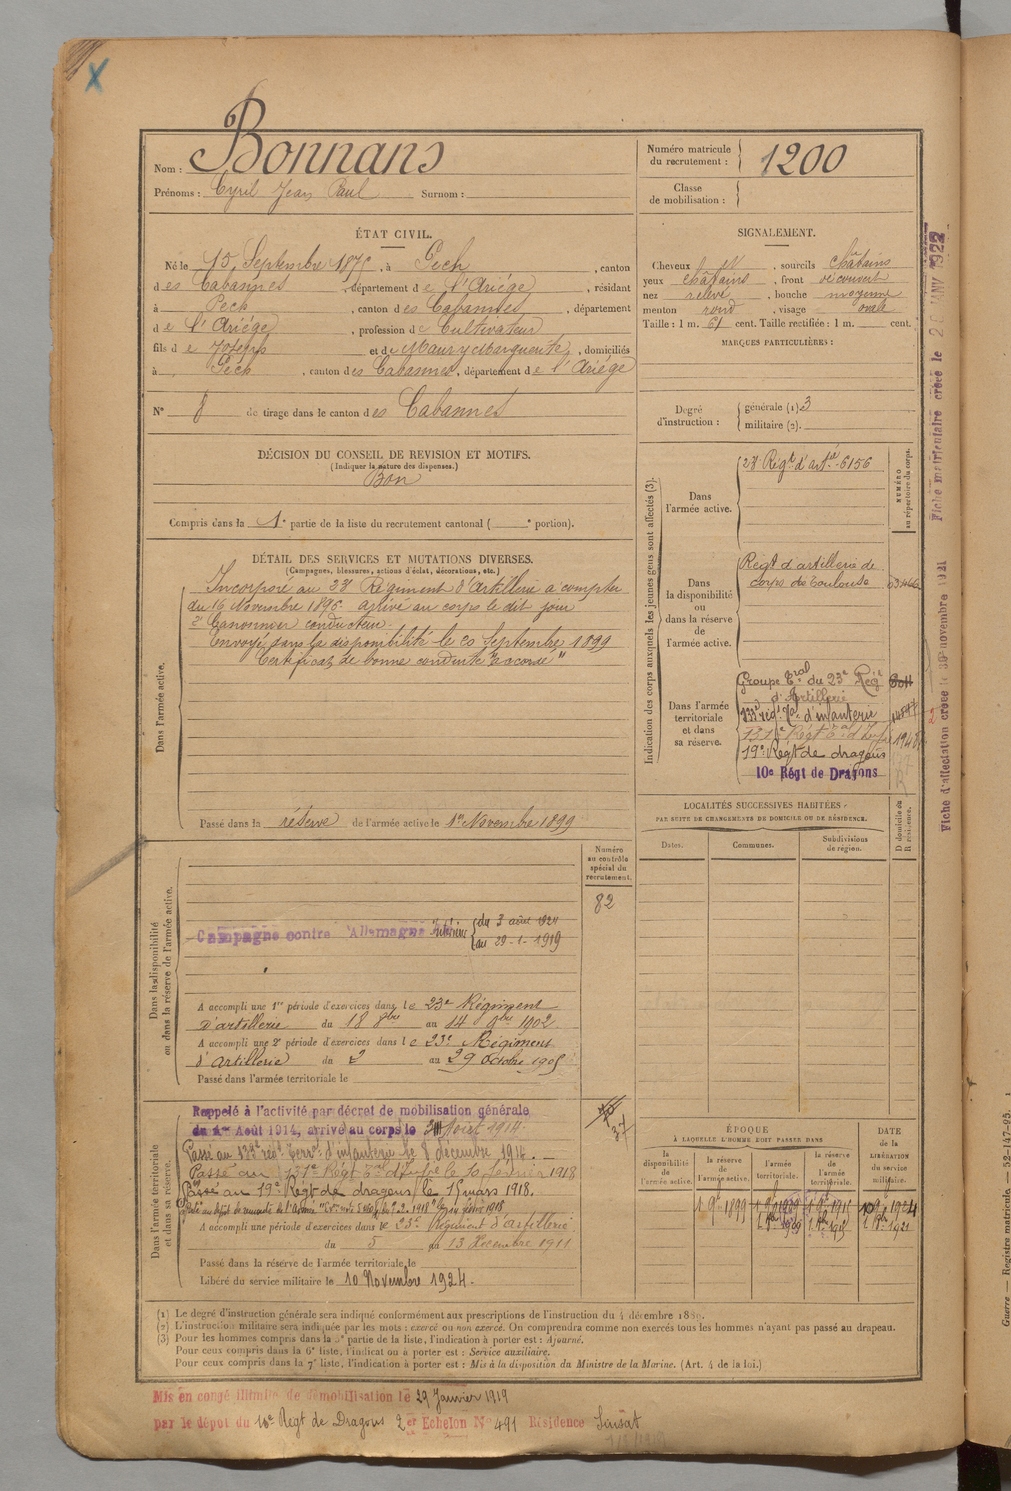 Nom : Bonnans
Prénoms : Cyril Jean Paul Surnom :
Numéro matricule du recrutement : 1200
Classe de mobilisation :
ÉTAT CIVIL.
Né le 15 Septembre 187 , à Pech , canton
des Cabannes , département de l'Ariége , résidant
à Pech , canton des Cabannes , département
de l'Ariége , profession de Cultivateur
fils de Joseph et de Maury Marguerite , domiciliés
à Pech , canton des Cabannes , département de l'Ariége
N° 8 de tirage dans le canton des Cabannes
SIGNALEMENT.
Cheveux , sourcils châtains
yeux châtains , front découvert
nez relevé , bouche moyenne
menton rond , visage ovale
Taille : 1 m. 61 cent. Taille rectifiée : 1 m. cent.
MARQUES PARTICULIÈRES :
Degré d'instruction : générale (1) 3
militaire (2).
DÉCISION DU CONSEIL DE REVISION ET MOTIFS.
(Indiquer la nature des dispenses.)
Bon
Compris dans la 1e partie de la liste du recrutement cantonal ( e portion).
DÉTAIL DES SERVICES ET MUTATIONS DIVERSES.
(Campagnes, blessures, actions d'éclat, décorations, etc.)
Dans l'armée active.
Incorporé au 23e Régiment d'Artillerie à compter
du 16 Novembre 1896. arrivé au corps le dit jour
2e Canonnier conducteur.
Envoyé dans la disponibilité le 20 Septembre 1899
Certificat de bonne conduite "accordé"
Passé dans la réserve de l'armée active le 1er Novembre 1899
Indication des corps auxquels les jeunes gens sont affectés (3).
NUMÉRO au répertoire du corps.
Dans l'armée active.
23e Régt d'artie - 6156
Dans la disponibilité ou dans la réserve de l'armée active.
Régt d'artillerie de
corps de Toulouse
Dans l'armée territoriale et dans sa réserve.
Groupe Tral du 23e Régt
d'Artillerie
133e régt Tal d'infanterie
131e Régt Tal d'Infie
19e Régt de dragons
10e Régt de Dragons
LOCALITÉS SUCCESSIVES HABITÉES
PAR SUITE DE CHANGEMENTS DE DOMICILE OU DE RÉSIDENCE.
Dates. Communes. Subdivisions de région. D domicile ou R résidence.
Dans la disponibilité ou dans la réserve de l'armée active.
Numéro au contrôle spécial du recrutement.
82
Campagne contre l'Allemagne Intérieur du 3 août
au 29-1-1919
A accompli une 1re période d'exercices dans le 23e Régiment
d'artillerie du 18 8bre au 14 9bre 1902
A accompli une 2e période d'exercices dans le 23e Régiment
d'Artillerie du 2 au 29 octobre 1905
Passé dans l'armée territoriale le
Dans l'armée territoriale et dans sa réserve.
Rappelé à l'activité par décret de mobilisation générale
du 1er Août 1914, arrivé au corps le 3 Août 1914.
Passé au 133e régt Terral d'infanterie le 8 décembre 1914.
Passé au 131e Régt Tal d'Infie le 10 Janvier 1918
Passé au 19e Régt de dragons le 15 mars 1918.
A accompli une période d'exercices dans le 23e Régiment d'artillerie
du 5 au 13 Décembre 1911
Passé dans la réserve de l'armée territoriale le
Libéré du service militaire le 10 Novembre 1924.
37
ÉPOQUE
À LAQUELLE L'HOMME DOIT PASSER DANS
la disponibilité de l'armée active.
la réserve de l'armée active.
l'armée territoriale.
la réserve de l'armée territoriale.
DATE de la LIBÉRATION du service militaire.
(1) Le degré d'instruction générale sera indiqué conformément aux prescriptions de l'instruction du 4 décembre 1889.
(2) L'instruction militaire sera indiquée par les mots : exercé ou non exercé. On comprendra comme non exercés tous les hommes n'ayant pas passé au drapeau.
(3) Pour les hommes compris dans la 5e partie de la liste, l'indication à porter est : Ajourné.
Pour ceux compris dans la 6e liste, l'indication à porter est : Service auxiliaire.
Pour ceux compris dans la 7e liste, l'indication à porter est : Mis à la disposition du Ministre de la Marine. (Art. 4 de la loi.)
Mis en congé illimité de démobilisation le 29 Janvier 1919
par le dépôt du 10e Régt de Dragons 2e Echelon N° 491 Résidence
Fiche matriculaire créée le 2 JANV 1922
Fiche d'affectation créée le 30 novembre 1921
Guerre — Registre matricule. — 52-147-95.